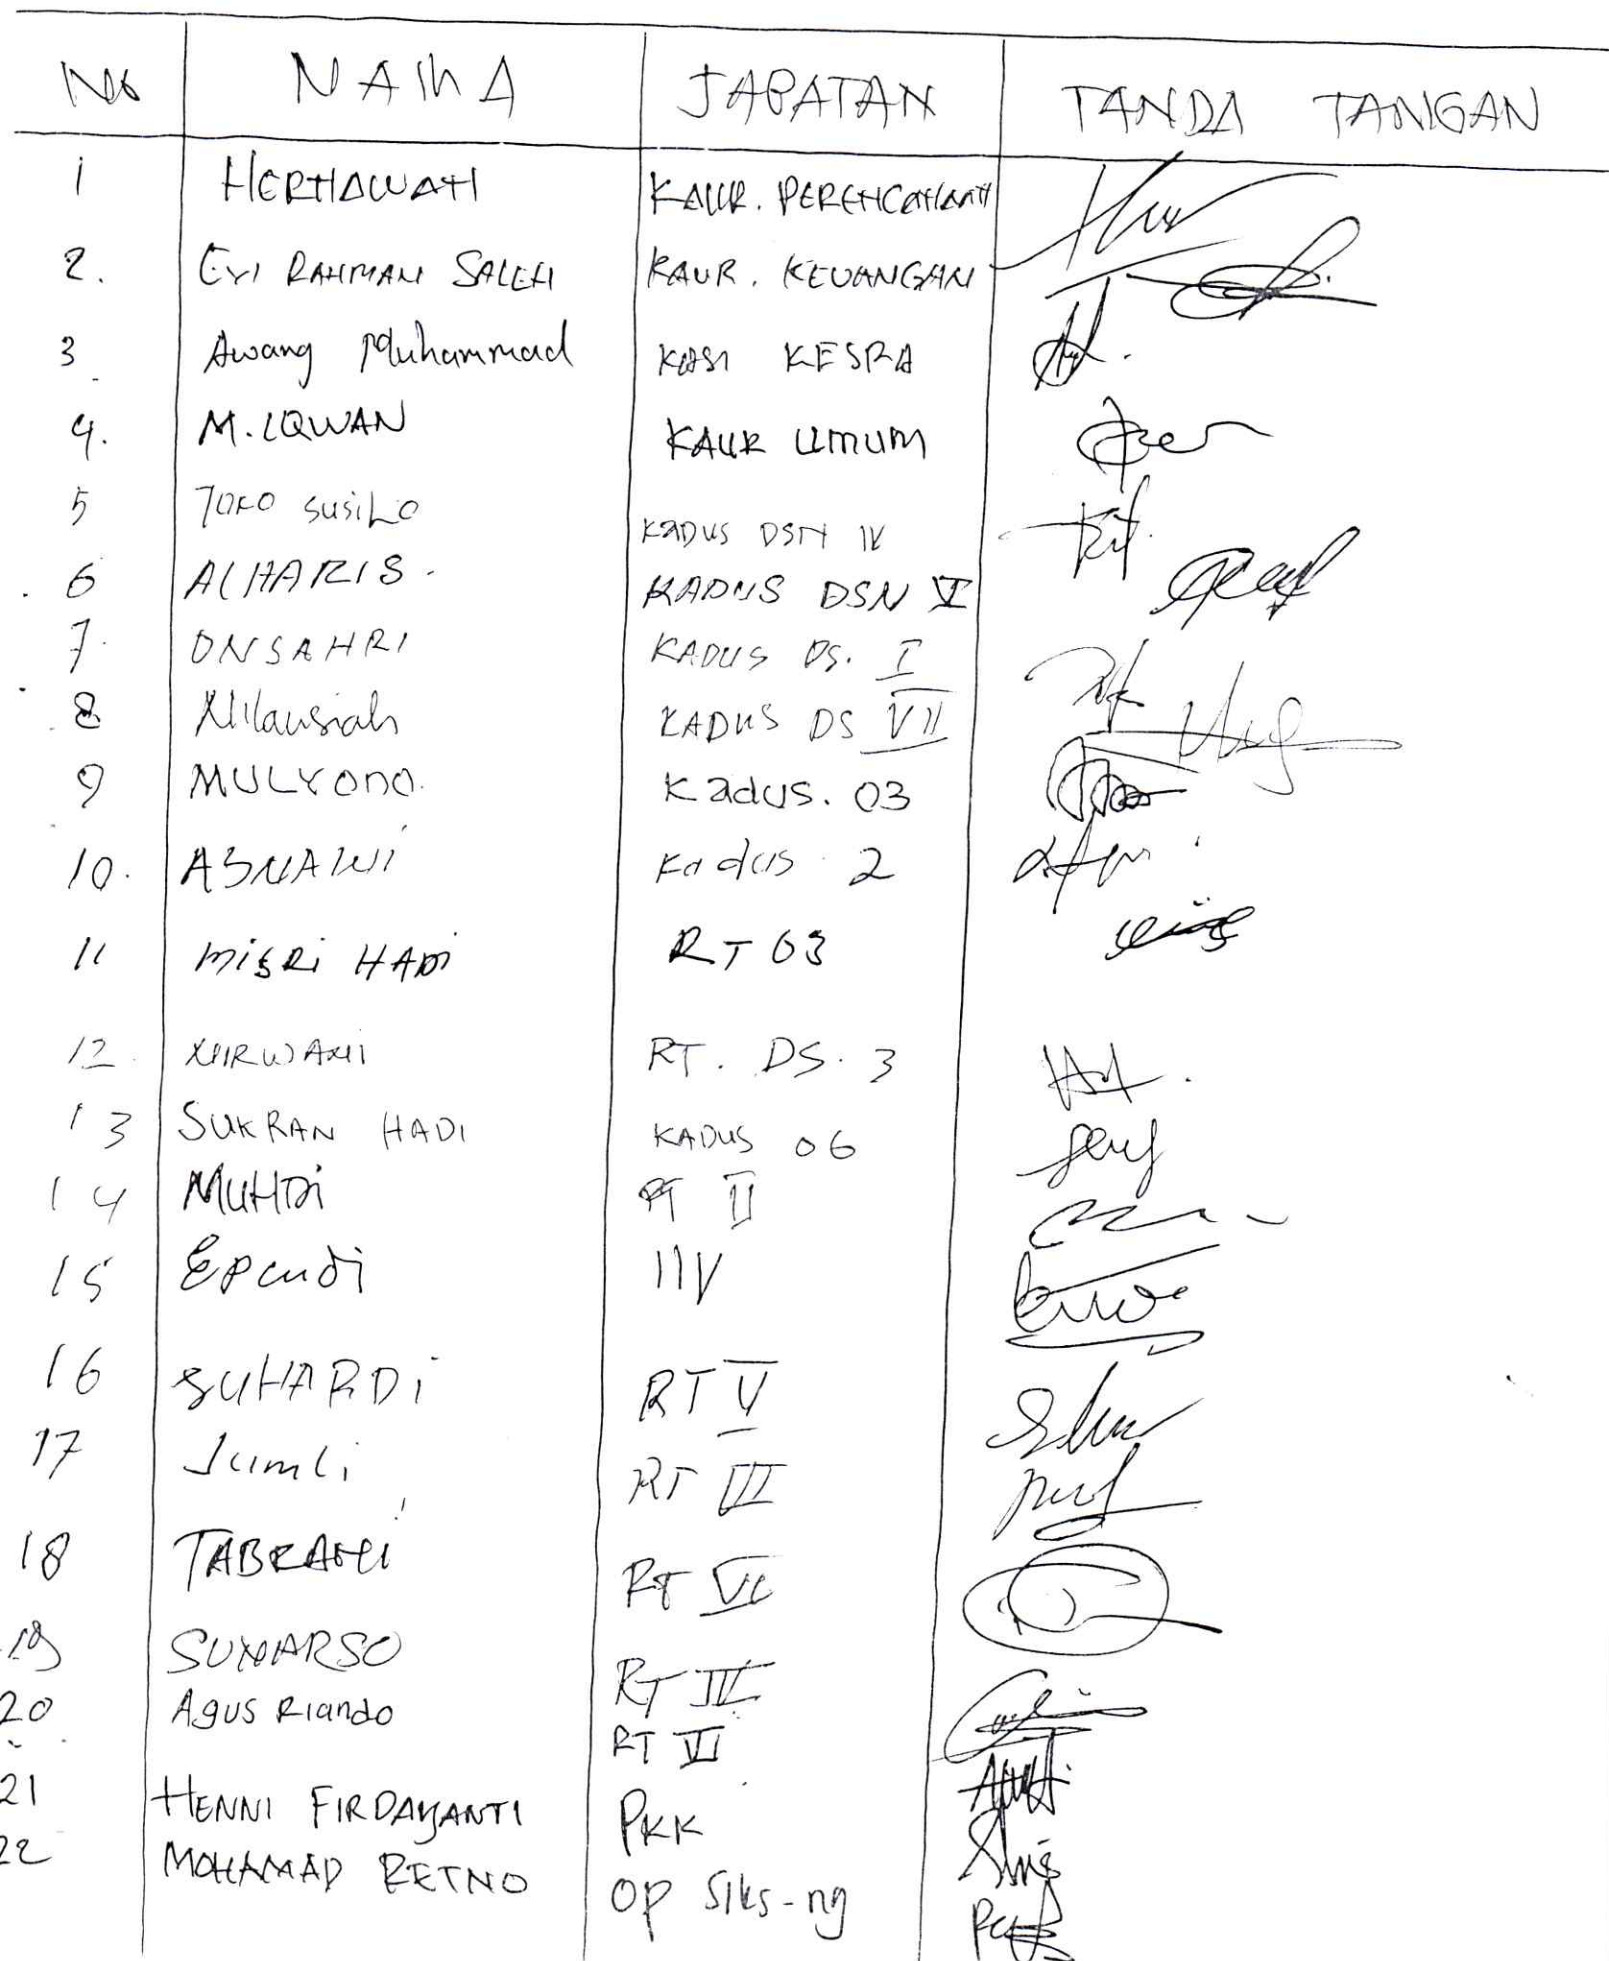 No NAMA JABATAN TANDA TANGAN
1 HERNAWATI KAUR. PERENCANAAN
2. EVI RAHMAN SALEH KAUR. KEUANGAN
3. Awang Muhammad KASI KESRA
4. M. IQWAN KAUR UMUM
5 JOKO SUSILO KADUS DSN IV
6 ALHARIS. KADUS DSN V
7. ONSAHRI KADUS DS. I
8 KADUS DS VII
9 MULYONO. Kadus. 03
10. ASNAWI Kadus 2
11 MISRI HADI RT 03
12. NIRWANI RT. DS. 3
13 SUKRAN HADI KADUS 06
14 MUHDI RT II
15 Ependi
16 SUHARDI RT V
17 Jumli RT III
18 TABRANI RT VI
19 SUNARSO RT IV
20 Agus Riando RT VI
21 HENNI FIRDAYANTI PKK
22 MOHAMAD RETNO OP SIKS-ng